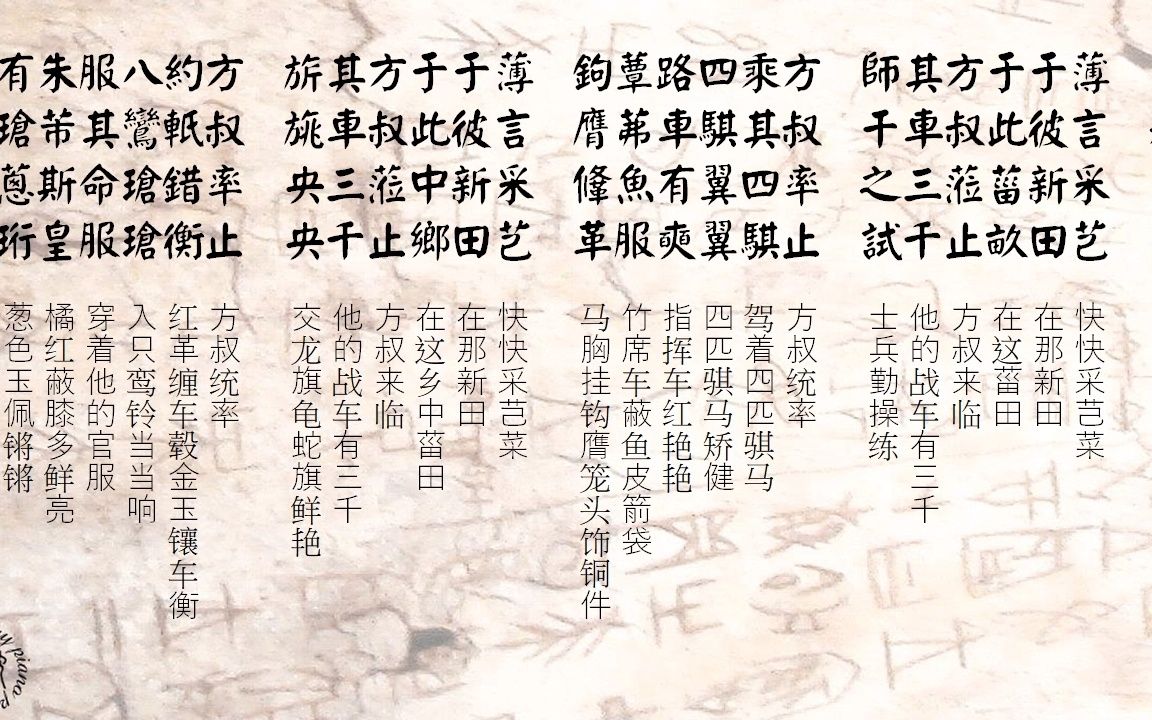 薄言采芑
于彼新田
于此菑畝
方叔蒞止
其車三千
師干之試
快快采芑菜
在那新田
在这菑田
方叔来临
他的战车有三千
士兵勤操练
方叔率止
乘其四騏
四騏翼翼
路車有奭
簟茀魚服
鉤膺鞗革
方叔统率
驾着四匹骐马
四匹骐马矫健
指挥车红艳艳
竹席车蔽鱼皮箭袋
马胸挂钩膺笼头饰铜件
薄言采芑
于彼新田
于此中鄉
方叔蒞止
其車三千
旂旐央央
快快采芑菜
在那新田
在这乡中菑田
方叔来临
他的战车有三千
交龙旗龟蛇旗鲜艳
方叔率止
約軝錯衡
八鸞瑲瑲
服其命服
朱芾斯皇
有瑲蔥珩
方叔统率
红革缠车毂金玉镶车衡
八只鸾铃当当响
穿着他的官服
橘红蔽膝多鲜亮
葱色玉佩锵锵
piano